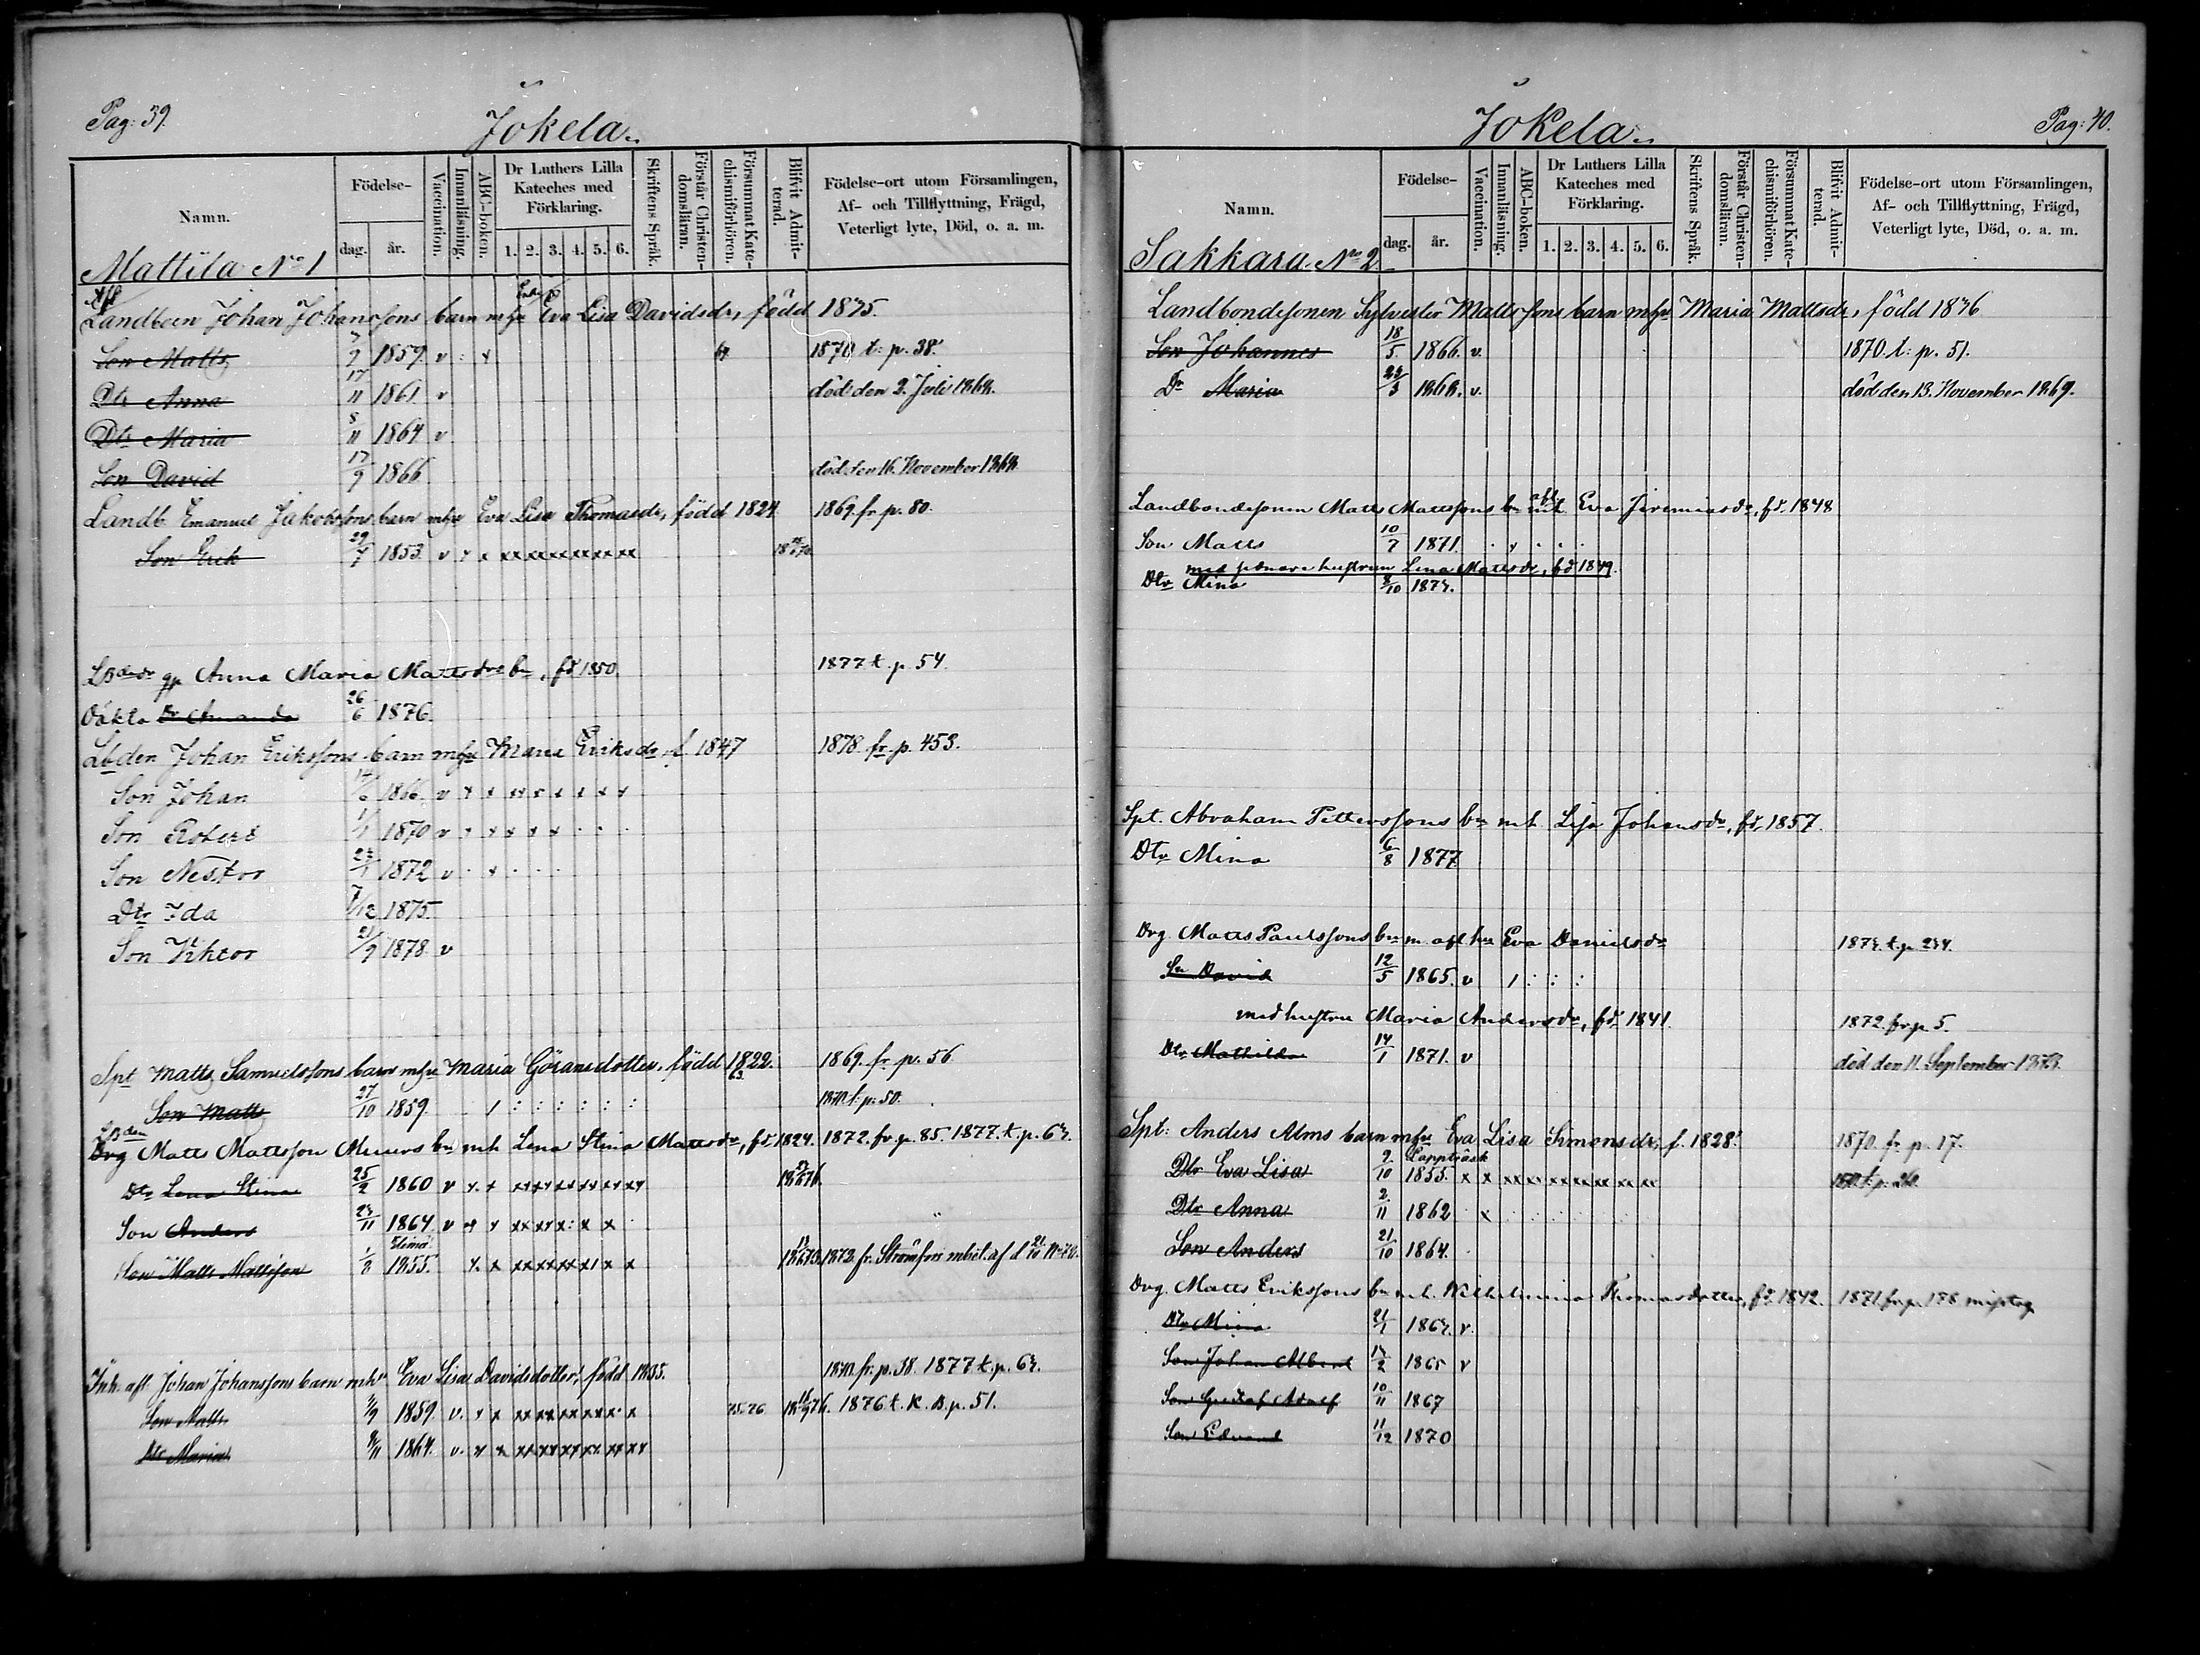 Pag: 39.
Jokela.
Namn.
Födelse-
dag.
år.
Vaccination.
Innanläsning.
ABC-boken.
Dr Luthers Lilla
Kateches med
Förklaring.
1. 2. 3. 4. 5. 6.
Skriftens Språk.
Förstår Christen-
domsläran.
Försummat Kate-
chismiförhören.
Blifvit Admit-
terad.
Födelse-ort utom Församlingen,
Af- och Tillflyttning, Frägd,
Veterligt lyte, Död, o. a. m.
Mattila No 1
Afl
Enka
Landboen Johan Johanssons barn mhu Eva Lisa Davidsdr, född 1835.
Son Matts 7/9 1859. v : x 1870 t. p. 38.
Dtr Anna 17/11 1861 v död den 2. Juli 1868.
Dtr Maria 8/11 1864 v
Son David 17/9 1866 död den 16. November 1868
Landb. Emanuel Jakobssons barn mhu Eva Lisa Thomasdr, född 1824 1869. fr p. 80.
Son Erik 29/7 1853. v x x xx xx xx xx xx xx
Anna Maria Mattsdrs bn, fd 1850. 1877 t. p. 54
Oäkta Dr Amanda 26/6 1876.
Lbden Johan Erikssons barn mhu Maria Eriksdr f. 1847 1878. fr. p. 453.
Son Johan 1866. v x x xx x x x x x
Son Robert 1/1 1870 v x x x x x . . .
Son Nestor 23/1 1872 v . x . . .
Dtr Ida 7/12 1875.
Son Viktor 21/9 1878. v
Spt Matts Samuelssons barn mhu Maria Göransdotter, född 1822. 1869. fr. p. 56.
Son Matts 27/10 1859. / : : : : : : 1870 t. p. 50.
Lbden
Drg Matts Mattsson Muurs bn mh Lena Stina Mattsdr, fd. 1824. 1872. fr. p. 85. 1877. t. p. 63.
Dtr Lena Stina 25/2 1860 v x. x xx xx xx xx xx xx
Son Anders 23/11 1864. v x x xx xx x: x x
Elimä
Son Matts Mattsson 1/2 1855. x. x xx xx xx x x x 1873. fr. Strömfors m bet. af d 21/10 No 70.
Inh. afl Johan Johanssons barn mhu Eva Lisa Davidsdotter, född 1835. 1870. fr. p. 38. 1877 t. p. 63.
Son Matts 7/9 1859. v. x x xx xx xx xx x. x 75. 76 1876 t. K. B. p. 51.
Dtr Maria 8/11 1864. v. x x xx xx xx xx xx xx
Jokela.
Pag: 40.
Namn.
Födelse-
dag.
år.
Vaccination.
Innanläsning.
ABC-boken.
Dr Luthers Lilla
Kateches med
Förklaring.
1. 2. 3. 4. 5. 6.
Skriftens Språk.
Förstår Christen-
domsläran.
Försummat Kate-
chismiförhören.
Blifvit Admit-
terad.
Födelse-ort utom Församlingen,
Af- och Tillflyttning, Frägd,
Veterligt lyte, Död, o. a. m.
Sakkara No 2
Landbondesonen Sylvester Mattssons barn mhu Maria Mattsdr, född 1836
Son Johannes 18/5 1866. v. 1870. t: p. 51.
Dr Maria 23/3 1868. v. död den 13. November 1869.
Landbondesonen Matts Mattssons bn afl Eva Jeremiasdr, fd. 1848
Son Matts 10/7 1871. . x . . .
med senare hustrun Lena Mattsdr, fd 1849.
Dtr Mina 8/10 1873.
Spt. Abraham Petterssons bn mh Lisa Johansdr, fd. 1857.
Dtr Mina 6/8 1877
Drg Matts Paulssons bn m. afl hu Eva Danielsdr 1873. t. p. 234.
Sn David 12/5 1865. v / : : :
med hustru Maria Andersdr, fd. 1841. 1872. fr. p. 5.
Dtr Mathilda 14/1 1871. v död den 11. September 1873.
Spt: Anders Alms barn mhu Eva Lisa Simonsdr, f. 1828. 1870. fr. p. 17.
Lappträsk
Dtr Eva Lisa 9/10 1855. x x xx xx xx xx xx xx
Dtr Anna 2/11 1862 . x . . . .
Son Anders 21/10 1864.
Drg. Matts Erikssons bn mh. Wilhelmina Thomasdotter, fd. 1842. 1871. fr. p. 178
Dtr Mina 21/1 1863. v.
Son Johan Albert 13/2 1865 v
Son Gustaf Adolf 10/11 1867
Son Edvard 11/12 1870